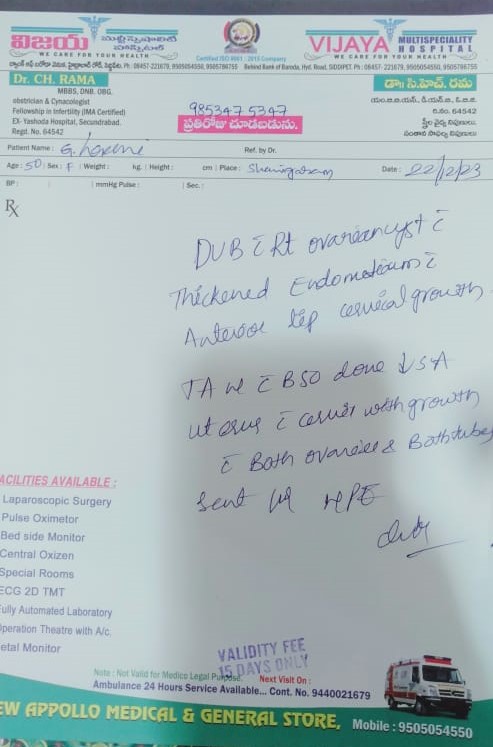 విజయ మల్టీస్పెషాలిటీ హాస్పిటల్
WE CARE FOR YOUR HEALTH
Certified ISO 9001 : 2015 Company
VIJAYA MULTISPECIALITY HOSPITAL
WE CARE FOR YOUR HEALTH
Ph: 08457-221679, 9505054550, 9505786755 Behind Bank of Baroda, Hyd. Road, SIDDIPET. Ph: 08457- 221679, 9505054550, 9505786755
Dr. CH. RAMA
MBBS, DNB. OBG.
obstetrician & Cynacologist
Fellowship in Infertility (IMA Certified)
EX- Yashoda Hospital, Secunderabad.
Regd. No. 64542
985347 5347
ప్రతిరోజు చూడబడును.
డా॥ సి.హెచ్. రమ
ఎం.బి.బి.ఎస్, డి.ఎన్.బి, ఓ.బి.జి.
రి.నం. 64542
స్త్రీల వైద్య నిపుణులు.
సంతాన సాఫల్య నిపుణులు
Patient Name : G. Ref. by Dr.
Age : 50 Sex : F Weight : kg. Height : cm Place : Date : 22/12/23
BP : mmHg Pulse : Sec. :
Rx
DUB c̄ Rt ovarian cyst c̄
Thickened Endometrium c̄
Anterior lip cervical growth
TAH c̄ BSO done ↓ SA
uterus c̄ cervix with growth
c̄ Both ovaries & Both tubes
sent for HPE
ACILITIES AVAILABLE :
Laparoscopic Surgery
Pulse Oximetor
Bed side Monitor
Central Oxizen
Special Rooms
ECG 2D TMT
Fully Automated Laboratory
Operation Theatre with A/c.
etal Monitor
VALIDITY FEE
15 DAYS ONLY
Note : Not Valid for Medico Legal Purpose. Next Visit On :
Ambulance 24 Hours Service Available... Cont. No. 9440021679
EW APPOLLO MEDICAL & GENERAL STORE, Mobile : 9505054550